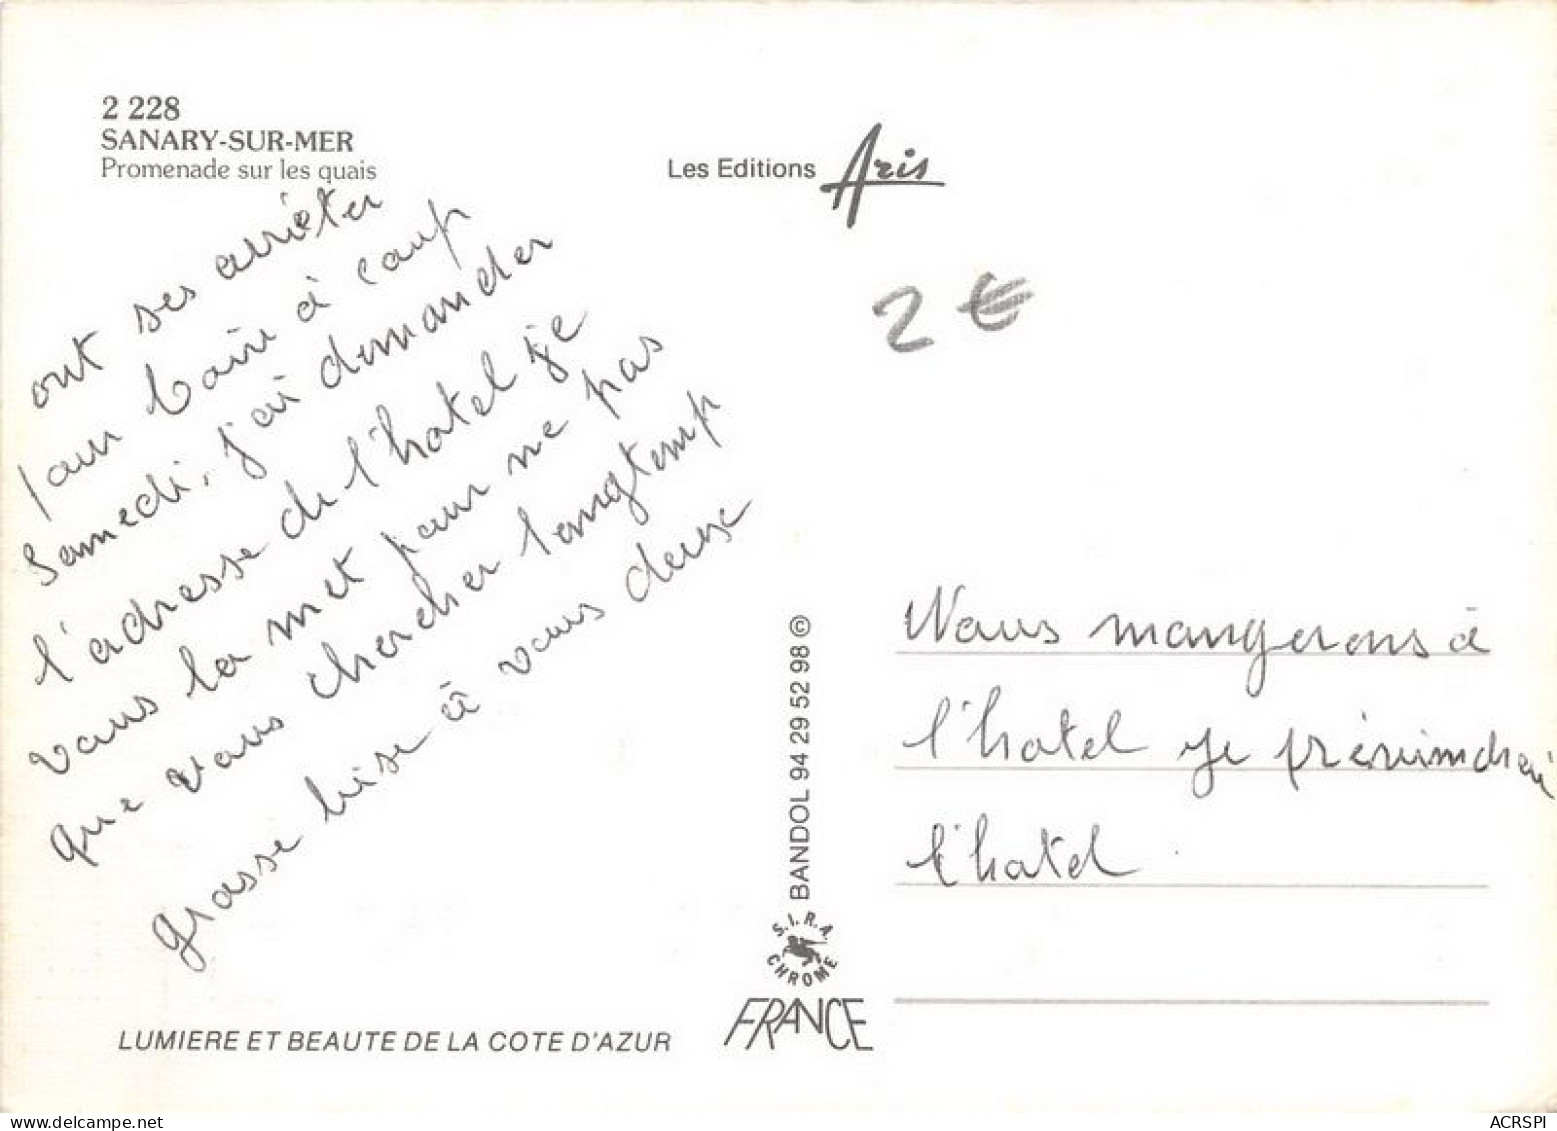 2 228
SANARY-SUR-MER
Promenade sur les quais
Les Editions Aris
2 €
ont ses arrièter
pour boire à coup
Samedi, j'ai demander
l'adresse de l'hotel je
vous la met pour ne pas
que vous chercher longtemp
grosse bise à vous deux
Nous mangerons à
l'hotel je préviendrai
l'hotel
BANDOL 94 29 52 98 ©
S.I.R.A.
CHROME
FRANCE
LUMIERE ET BEAUTE DE LA COTE D'AZUR
ACRSPI